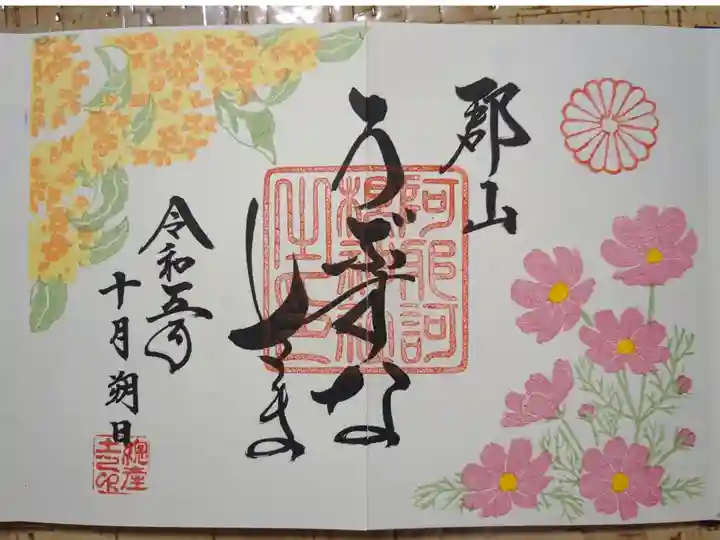 郡山
うぶすな
さま
阿邪訶
根神社
之印
令和五年
十月朔日